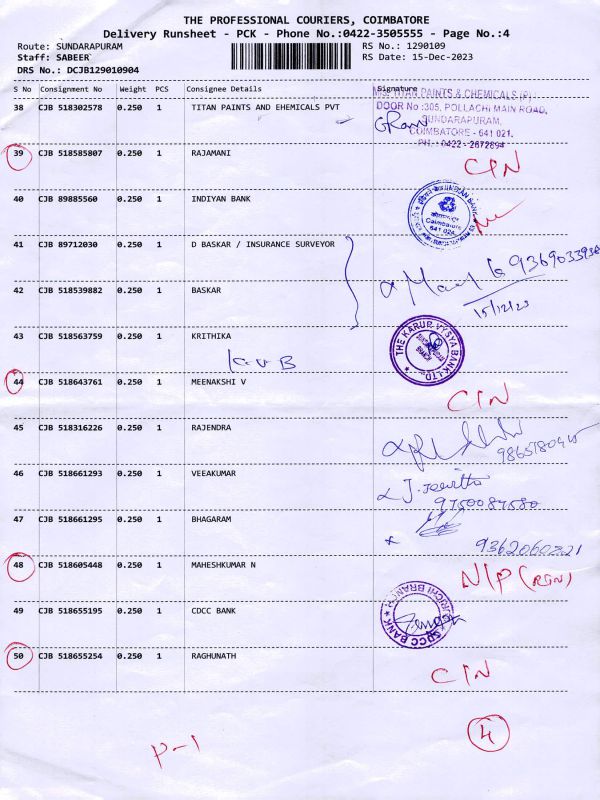 THE PROFESSIONAL COURIERS, COIMBATORE
Delivery Runsheet - PCK - Phone No.:0422-3505555 - Page No.:4
Route: SUNDARAPURAM RS No.: 1290109
Staff: SABEER RS Date: 15-Dec-2023
DRS No.: DCJB129010904
S No Consignment No Weight PCS Consignee Details Signature
M/s. TITAN PAINTS & CHEMICALS (P)
38 CJB 518302578 0.250 1 TITAN PAINTS AND EHEMICALS PVT DOOR No :305, POLLACHI MAIN ROAD,
SUNDARAPURAM,
COIMBATORE - 641 021.
PH. : 0422 - 2672894
39 CJB 518585807 0.250 1 RAJAMANI
CIN
40 CJB 89885560 0.250 1 INDIYAN BANK
INDIAN BANK
Coimbatore
641 024
41 CJB 89712030 0.250 1 D BASKAR / INSURANCE SURVEYOR
9369033936
42 CJB 518539882 0.250 1 BASKAR
15/12/23
43 CJB 518563759 0.250 1 KRITHIKA
THE KARUR VYSYA BANK LTD.
KVB
44 CJB 518643761 0.250 1 MEENAKSHI V
CIN
45 CJB 518316226 0.250 1 RAJENDRA
46 CJB 518661293 0.250 1 VEEAKUMAR
9750087580
47 CJB 518661295 0.250 1 BHAGARAM
9362060221
48 CJB 518605448 0.250 1 MAHESHKUMAR N
N/P (RGN)
49 CJB 518655195 0.250 1 CDCC BANK
50 CJB 518655254 0.250 1 RAGHUNATH
CIN
P-1
4